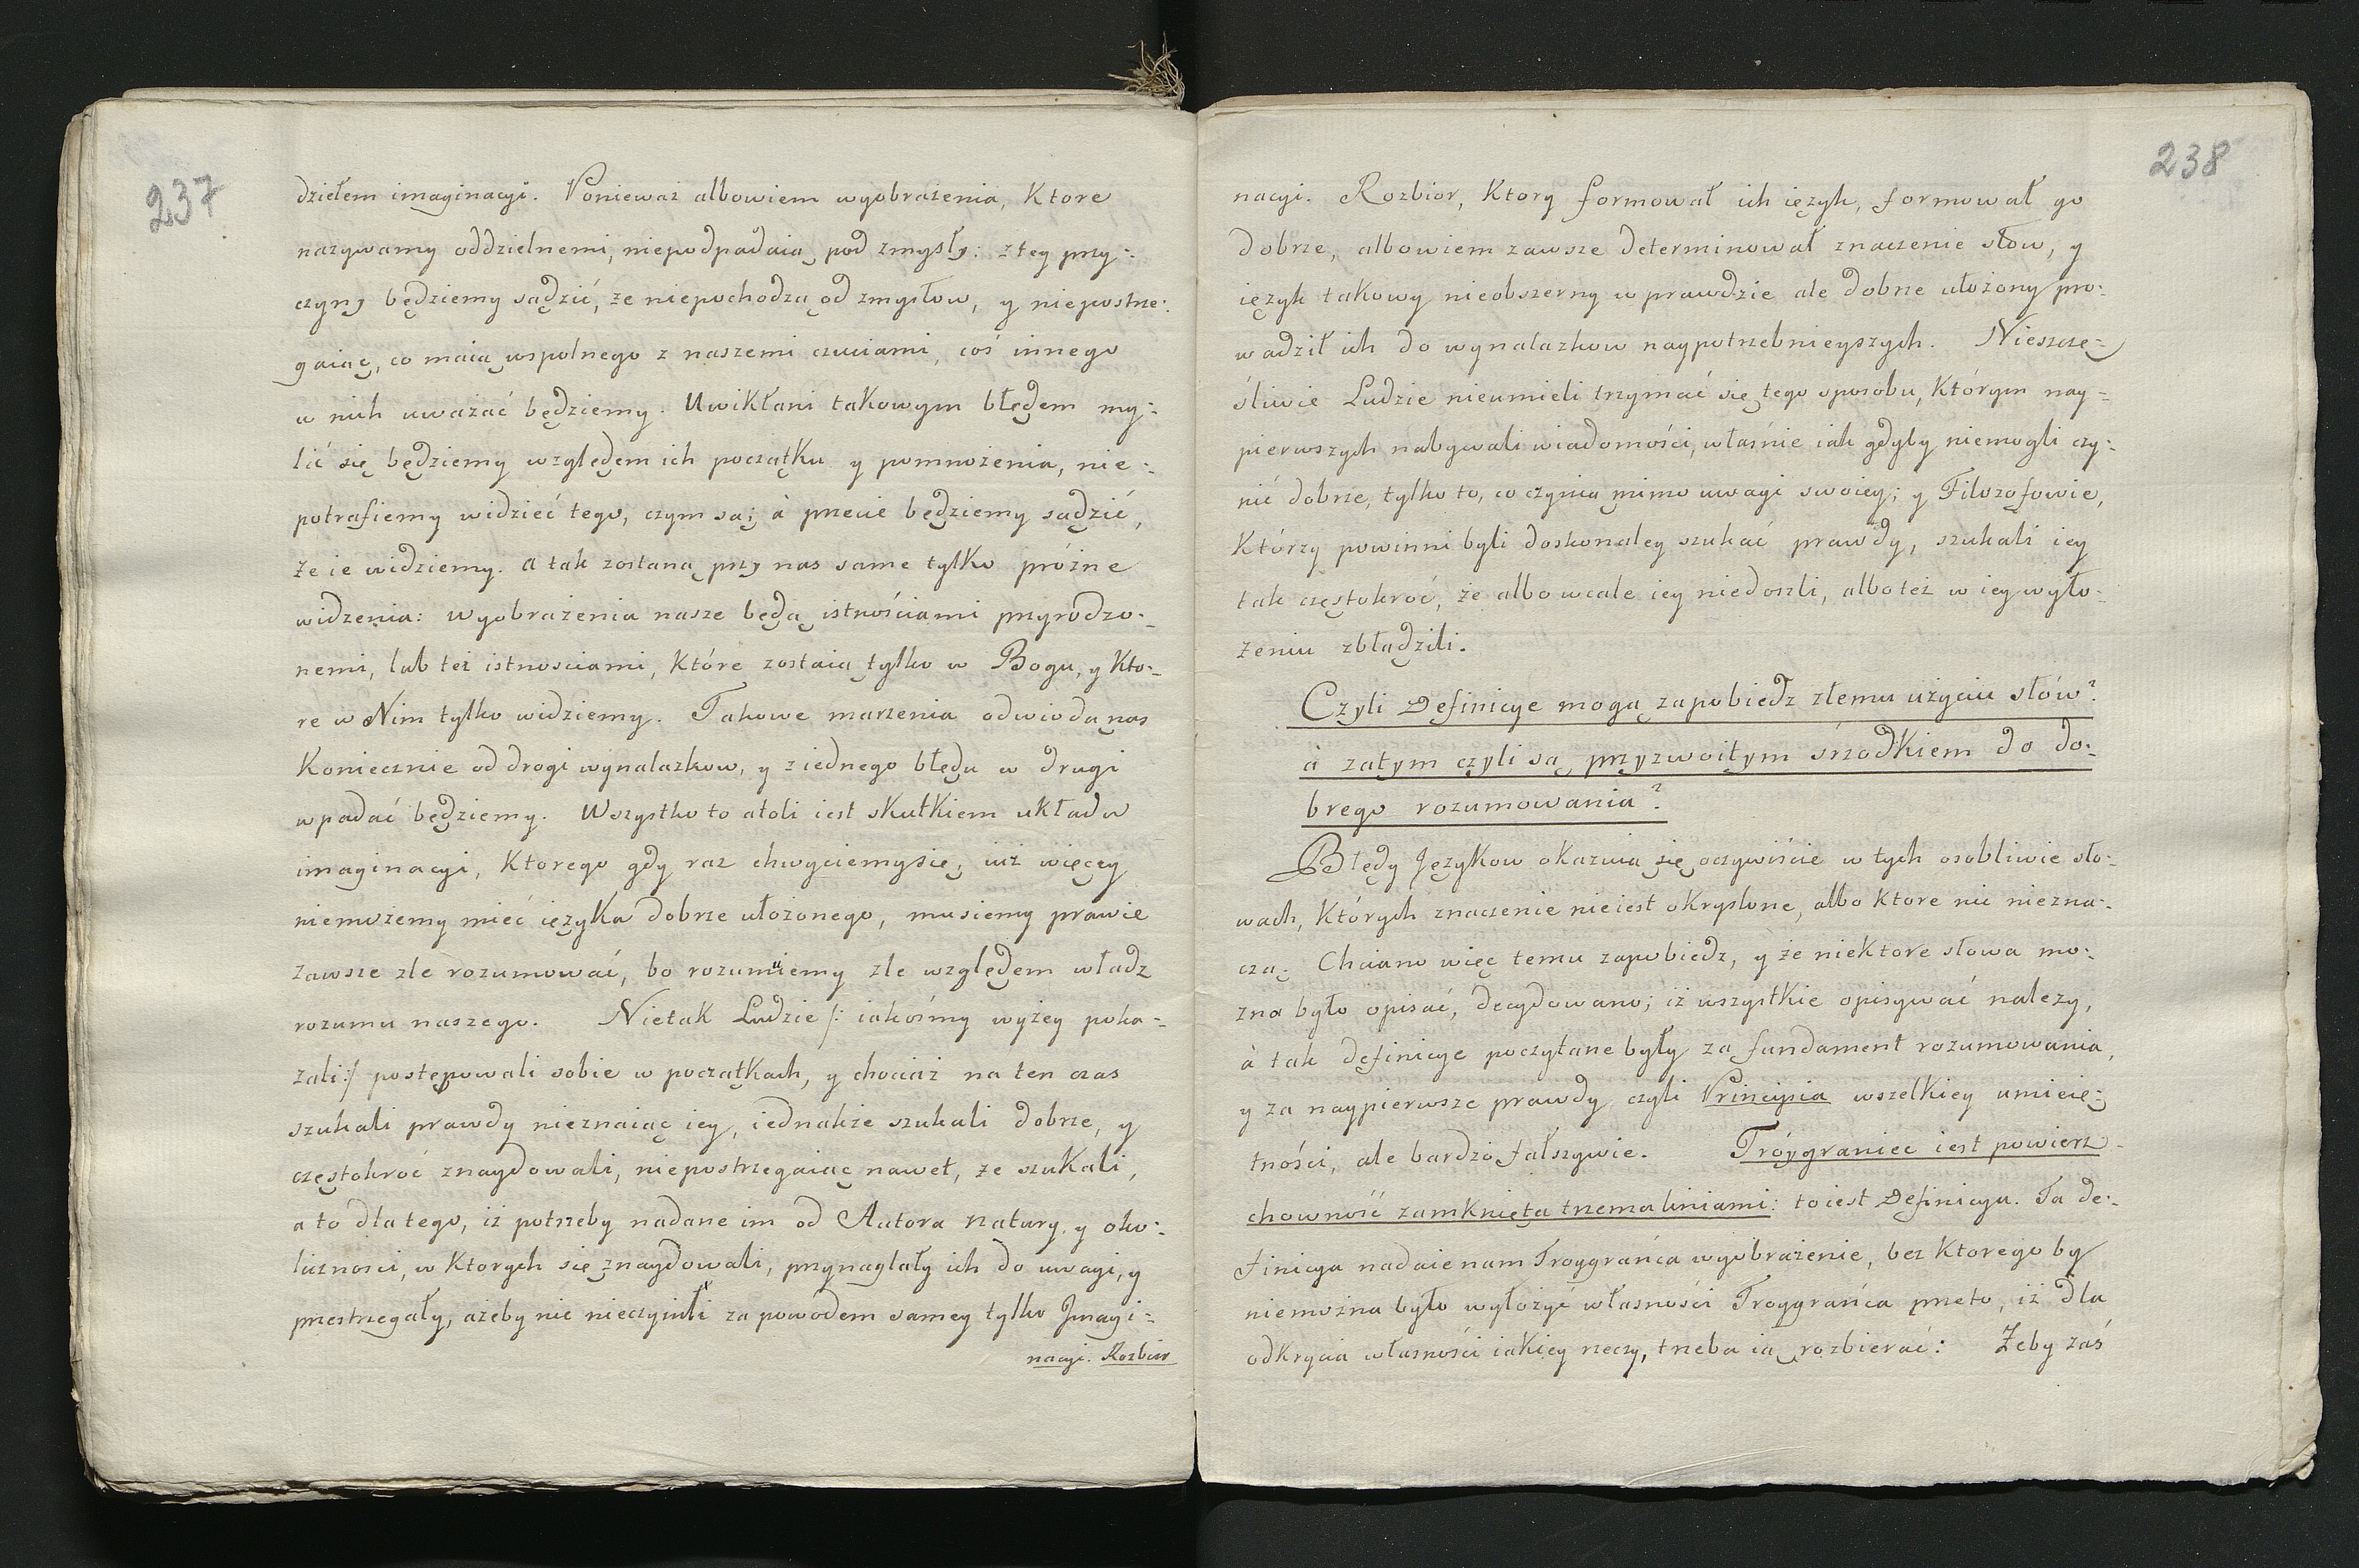 237
dziełem imaginacyi. Ponieważ albowiem wyobrażenia, Ktore
nazywamy oddzielnemi, niepodpadaią pod zmysły: z tey przy:
czyny będziemy sądzić, że niepochodzą od zmysłow, y niepostrze:
gaiąc, co maią wspolnego z naszemi czuciami, coś innego
w nich uważać będziemy. Uwikłani takowym błędem my:
lić się będziemy względem ich początku y pomnożenia, nie:
potrafiemy widzieć tego, czym są; à przecie będziemy sądzić,
że ie widziemy. a tak zostaną przy nas same tylko próżne
widzenia: wyobrażenia nasze będą istnościami przyrodzo:
nemi, lub też istnosciami, Które zostaią tylko w Bogu, y Kto:
re w Nim tylko widziemy. Takowe marzenia odwiodą nas
Koniecznie od drogi wynalazkow, y z iednego błędu w drugi
wpadać będziemy. Wszystko to atoli iest skutkiem układu
imaginacyi, Ktorego gdy raz chwyciemy się, iuż więcey
niemożemy mieć ięzyka dobrze ułożonego, musiemy prawie
zawsze zle rozumować, bo rozumuiemy zle względem władz
rozumu naszego. Nietak Ludzie /: iakośmy wyżey poka:
zali:/ postępowali sobie w początkach, y chociaż na ten czas
szukali prawdy nieznaiąc iey, iednakże szukali dobrze, y
częstokroć znaydowali, niepostrzegaiąc nawet, że szukali,
a to dla tego, iż potrzeby nadane im od Autora natury, y oko:
liczności, w Ktorych się znaydowali, przynaglały ich do uwagi, y
przestrzegały, ażeby nic nieczynili za powodem samey tylko Jmagi:
nacyi. Rozbior
238
nacyi. Rozbior, Ktory formował ich ięzyk, formował go
dobrze, albowiem zawsze determinował znaczenie słow, y
ięzyk takowy nieobszerny wprawdzie ale dobrze ułożony pro:
wadził ich do wynalazkow naypotrzebnieyszych. Nieszczę:
śliwie Ludzie nieumieli trzymać się tego sposobu, Którym nay:
pierwszych nabywali wiadomości, właśnie iak gdyby niemogli czy:
nić dobrze, tylko to, co czynią mimo uwagi swoiey; y Filozofowie,
Którzy powinni byli doskonaley szukać prawdy, szukali iey
tak częstokroć, że albo wcale iey niedoszli, albo też w iey wyło:
żeniu zbłądzili.
Czyli Definicye mogą zapobiedz złemu użyciu słów?
à zatym czyli są przyzwoitym śrzodkiem do do:
brego rozumowania?
Błędy Językow okazuią się oczywiście w tych osobliwie sło:
wach, Których znaczenie nieiest okryslone, albo ktore nic niezna:
czą. Chciano więc temu zapobiedz, y że niektore słowa mo:
zna było opisać, decydowano; iż wszystkie opisywać nalezy,
à tak definicye poczytane były za fundament rozumowania,
y za naypierwsze prawdy czyli Principia wszelkiey umieię:
tności, ale bardzo fałszywie. Tróygraniec iest powierz:
chowność zamknięta trzema liniami: to iest Definicya. Ta de:
finicya nadaie nam Troygrańca wyobrażenie, bez Ktorego by
niemożna było wyłożyć własności Troygrańca przeto, iż dla
odkrycia własności iakiey rzeczy, trzeba ią rozbierać: Żeby zaś